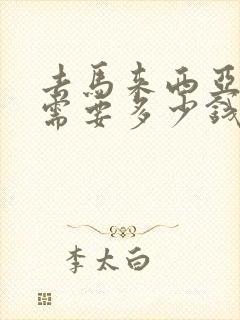 去馬來西亞
需要多少錢
李太白